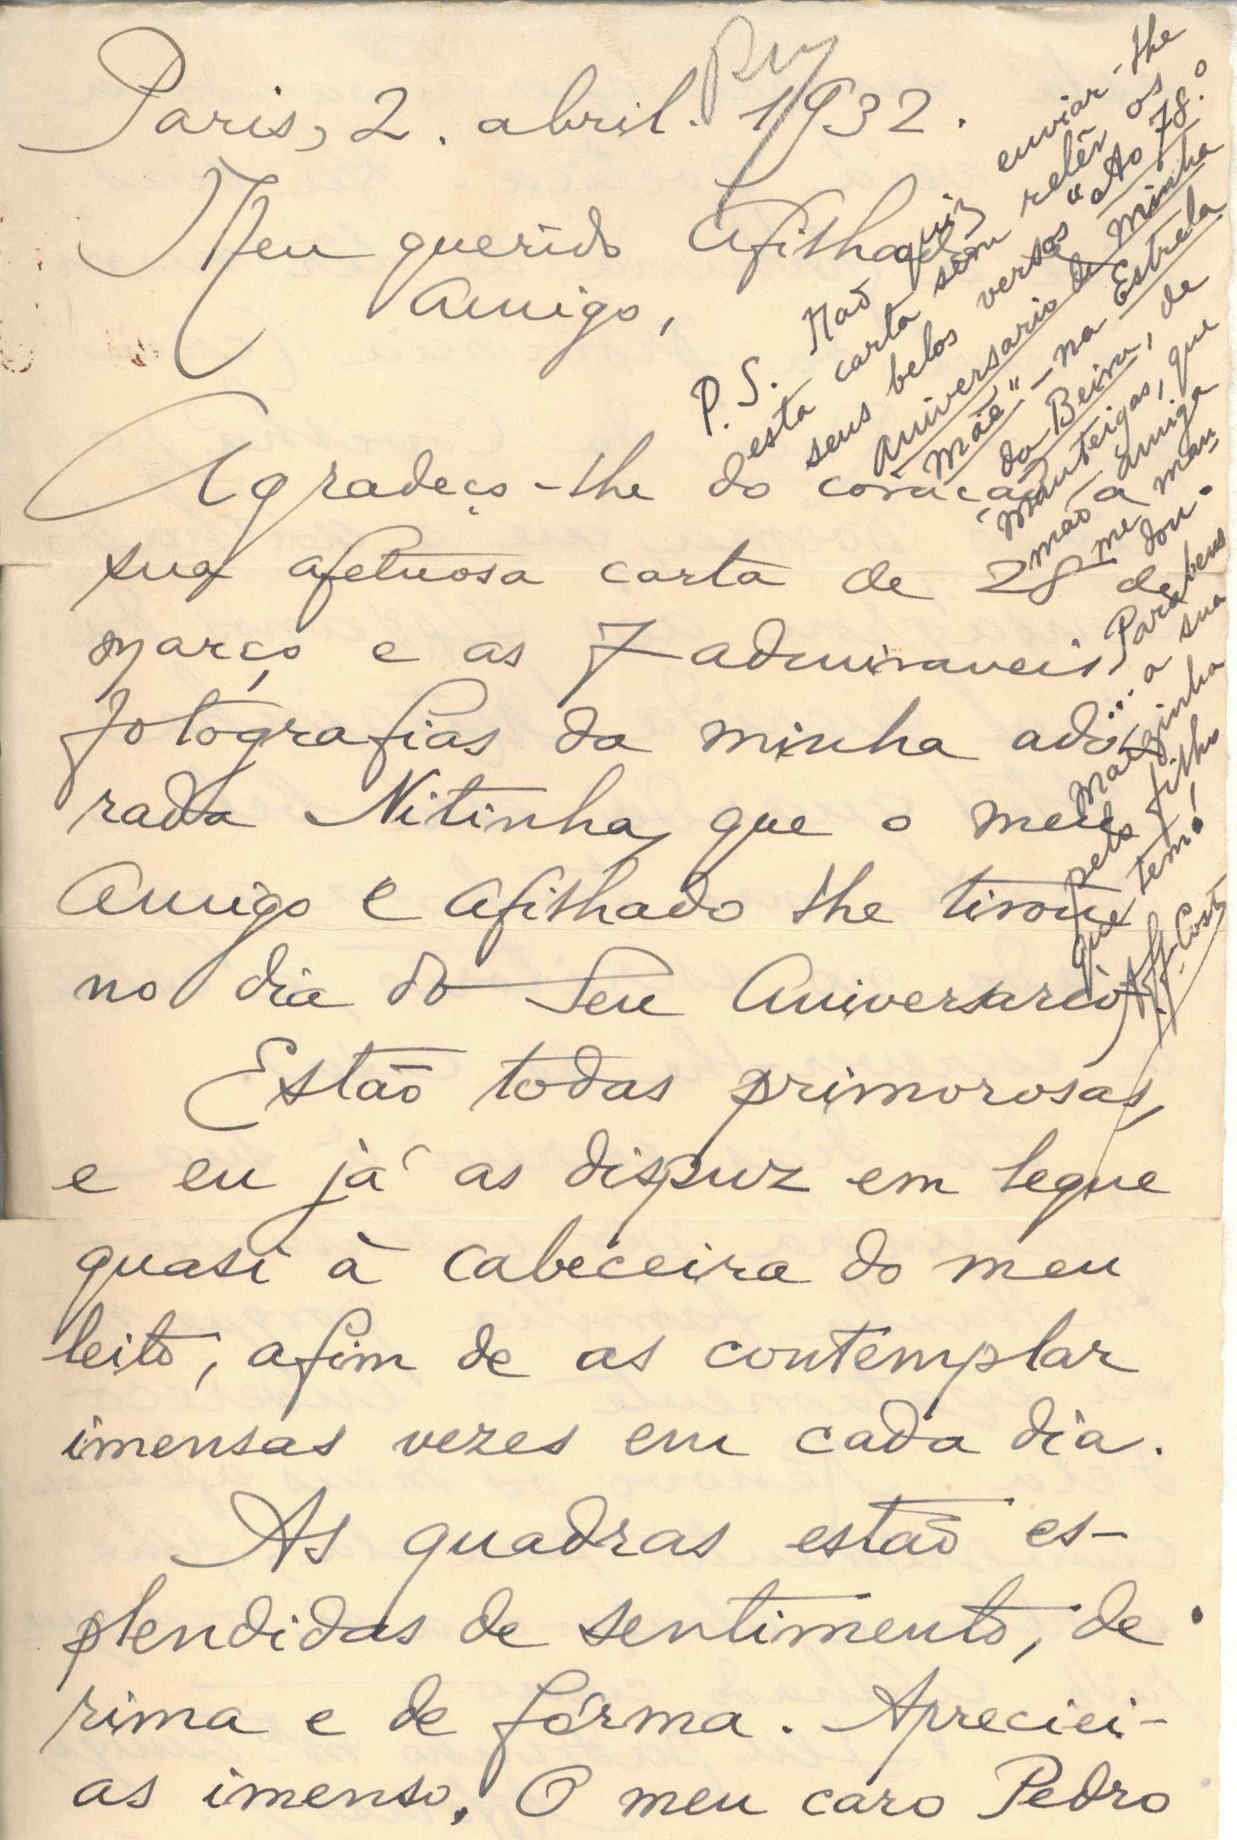 Paris, 2. abril. 1932.
Meu querido Afilhado
Amigo,
Agradeço-lhe do coração a
sua afetuosa carta de 28 de
março e as 7 admiraveis
fotografias da minha ado-
rada Nitinha, que o meu
Amigo e Afilhado lhe tirou
no dia do Seu Aniversario.
Estão todas primorosas,
e eu já as dispuz em leque
quasi à cabeceira do meu
leito, afim de as contemplar
imensas vezes em cada dia.
As quadras estão es-
plendidas de sentimento, de
rima e de fórma. Apreciei-
as imenso. O meu caro Pedro
P. S. Não quiz enviar-lhe
esta carta sem relêr os
seus belos versos "Ao 78.º
aniversario de Minha
Mãe" - na Estrela
da Beira, de
Manteigas, que
mão amiga
me man-
dou.
Parabens
... a sua
Mãezinha
pelo filho
que tem!
Aff. Costa